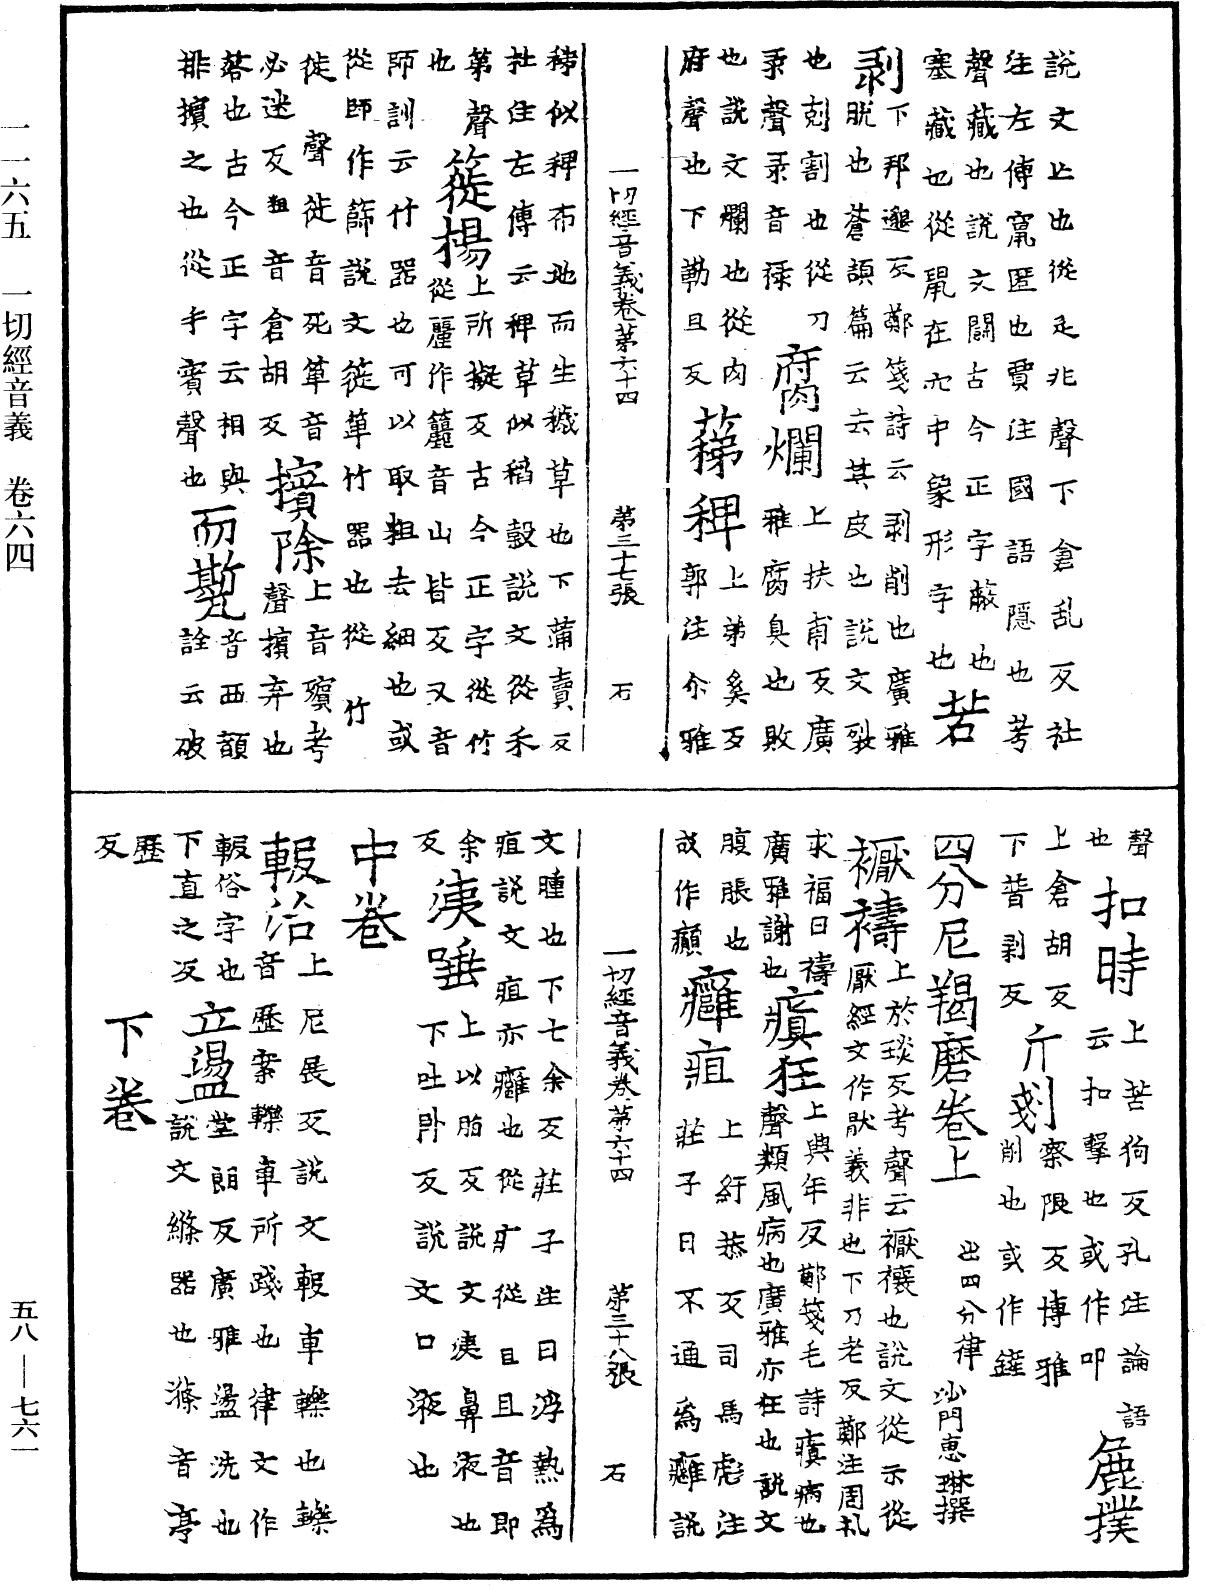 說文止也從辵北聲下倉乱反社
注左傳竄匿也賈注國語隱也考
聲藏也說文闘古今正字蔽也
塞藏也從鼠在穴中象形字也 苦
剥下邦邈反鄭箋詩云剥削也廣雅
脫也蒼頡篇云去其皮也說文裂
也刻割也從刀彔聲彔音祿 腐爛上扶甫反廣
雅腐臭也敗
也說文爛也從肉府聲也下勒旦反 蕛稗上弟奚反
郭注尒雅
一切經音義卷第六十四 第三十七張 石
稊似稗布地而生穢草也下蒲賣反
杜注左傳云稗草似稻穀說文從禾
第聲也 簁揚上所擬反古今正字從竹
從麗作籭音山皆反又音
師訓云竹器也可以取粗去細也或
從師作篩說文簁箄竹器也從竹
徙聲徙音死箄音
必迷反粗音倉胡反 擯除上音殯考
聲擯弃也
落也古今正字云相與
排擯之也從手賓聲也 而甏音西顡
詮云破
聲也 扣時上苦狗反孔注論語
云扣擊也或作叩 麁撲
上倉胡反
下普剥反 斤剗察限反博雅
削也或作鏟
四分尼羯磨卷上 出四分律 沙門惠琳撰
禰禱上於琰反考聲云禰禳也說文從示從
厭經文作猒義非也下刀老反鄭注周礼
求福曰禱
廣雅謝也 瘨狂上與年反鄭箋毛詩瘨病也
聲類風病也廣雅亦狂也說文
腹脹也
或作癲 癰疽上紆恭反司馬彪注
莊子曰不通爲癰說
一切經音義卷第六十四 第三十八張 石
文腫也下七余反莊子注曰浮熱爲
疽說文疽亦癰也從疒從且且音即
余反 洟唾上以脂反說文洟鼻液也
下吐卧反說文口液也
中卷
報治上尼展反說文報車轢也轢
音歷案轢車所踐也律文作
報俗字也
下直之反 立盪堂朗反廣雅盪洗也
說文滌器也滌音亭
歷反 下卷
一一六五 一切經音義 卷六四
五八—七六一